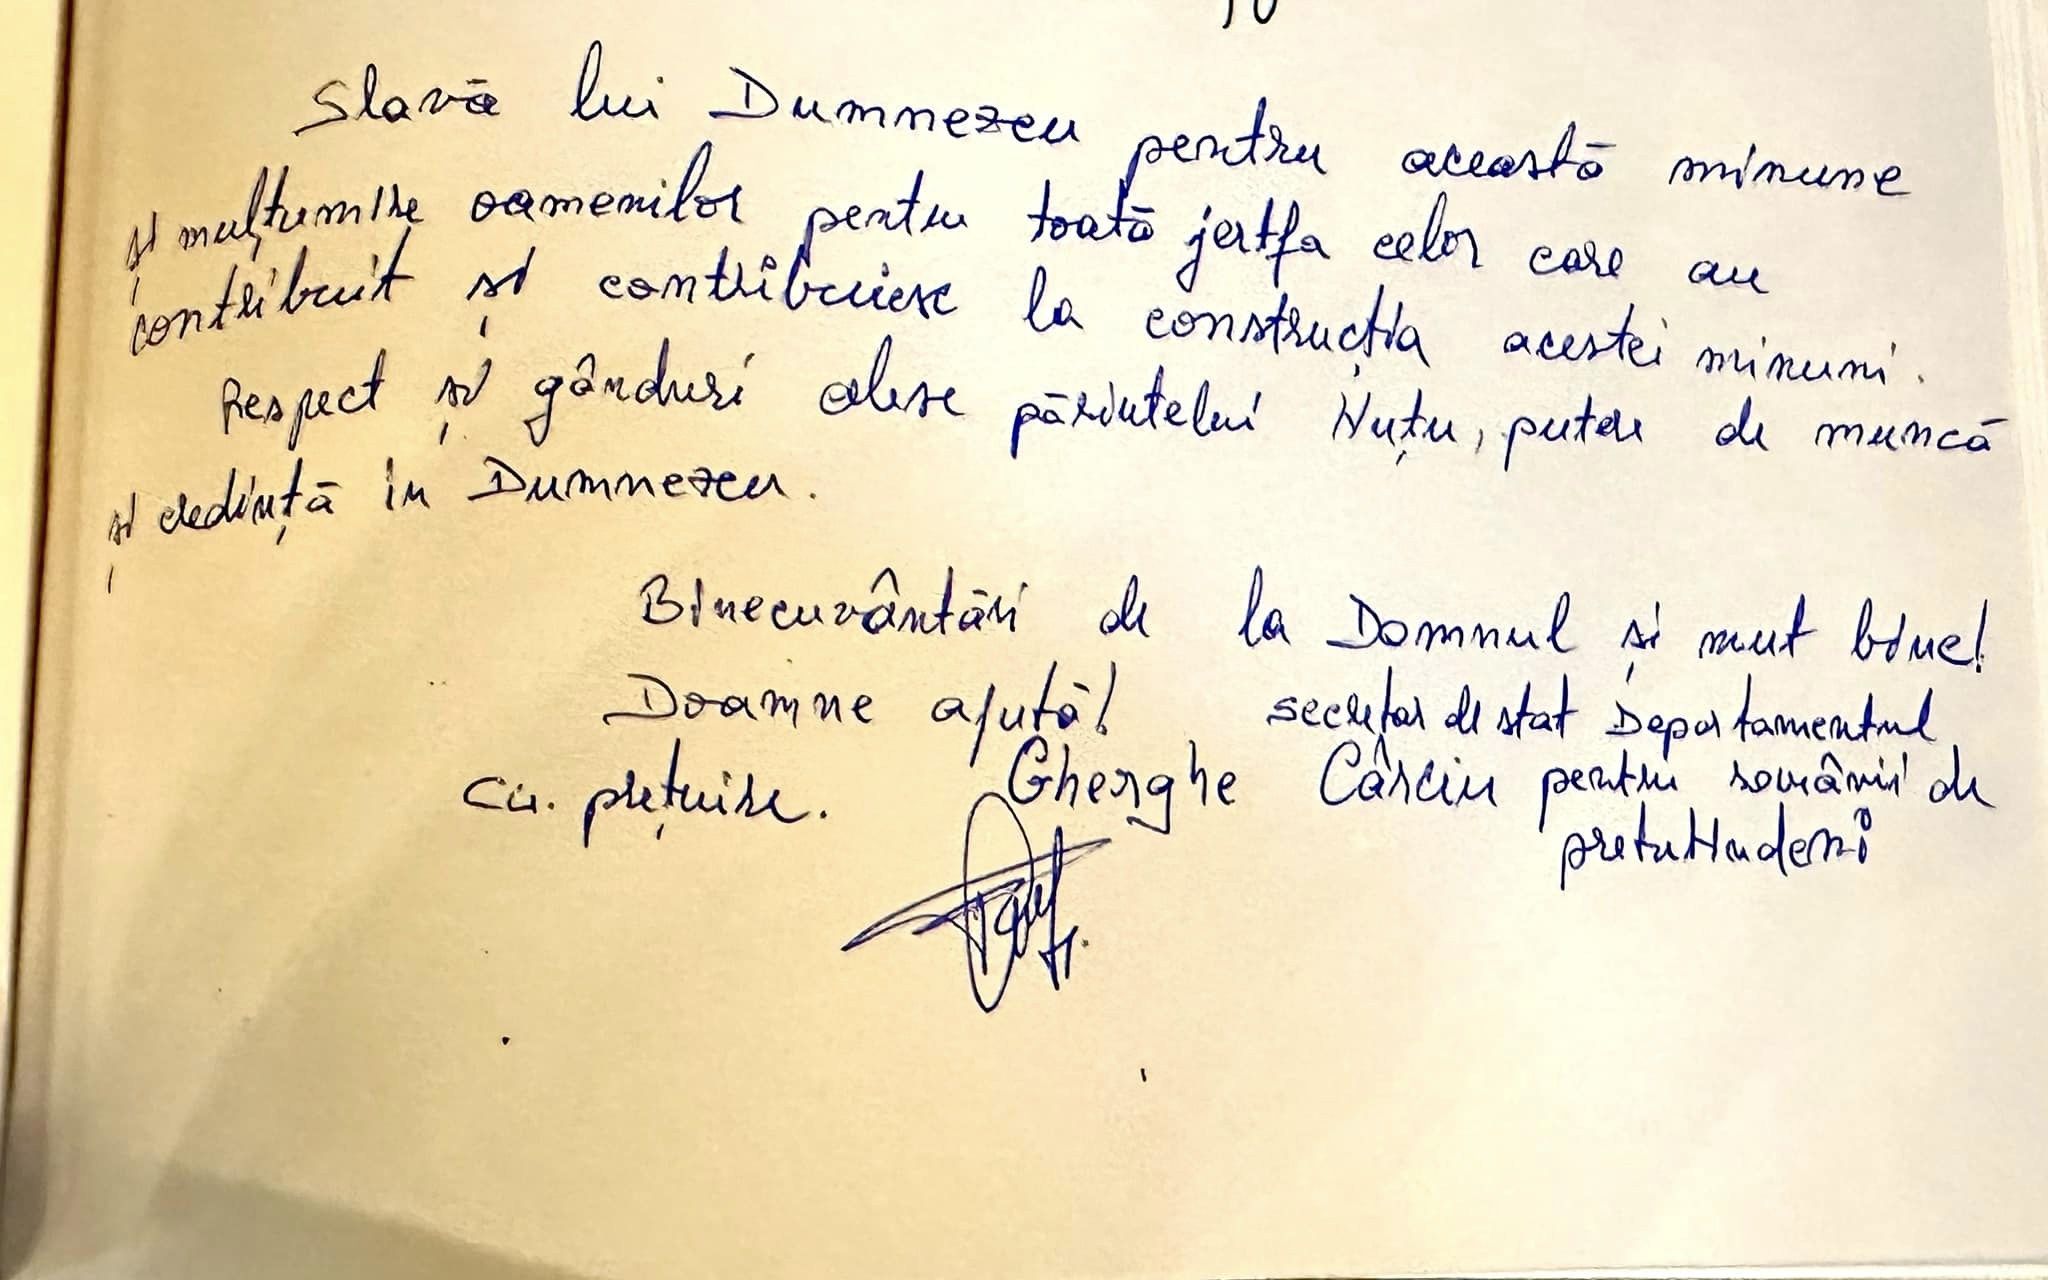 Slavă lui Dumnezeu pentru această minune
și mulțumire oamenilor pentru toată jertfa celor care au
contribuit și contribuiesc la construcția acestei minuni.
Respect și gânduri alese părintelui Nuțu, putere de muncă
și credință în Dumnezeu.
Binecuvântări de la Domnul și mult bine!
Doamne ajută! secretar de stat Departamentul
Cu prețuire. Gherghe Cârciu pentru românii de
pretutindeni